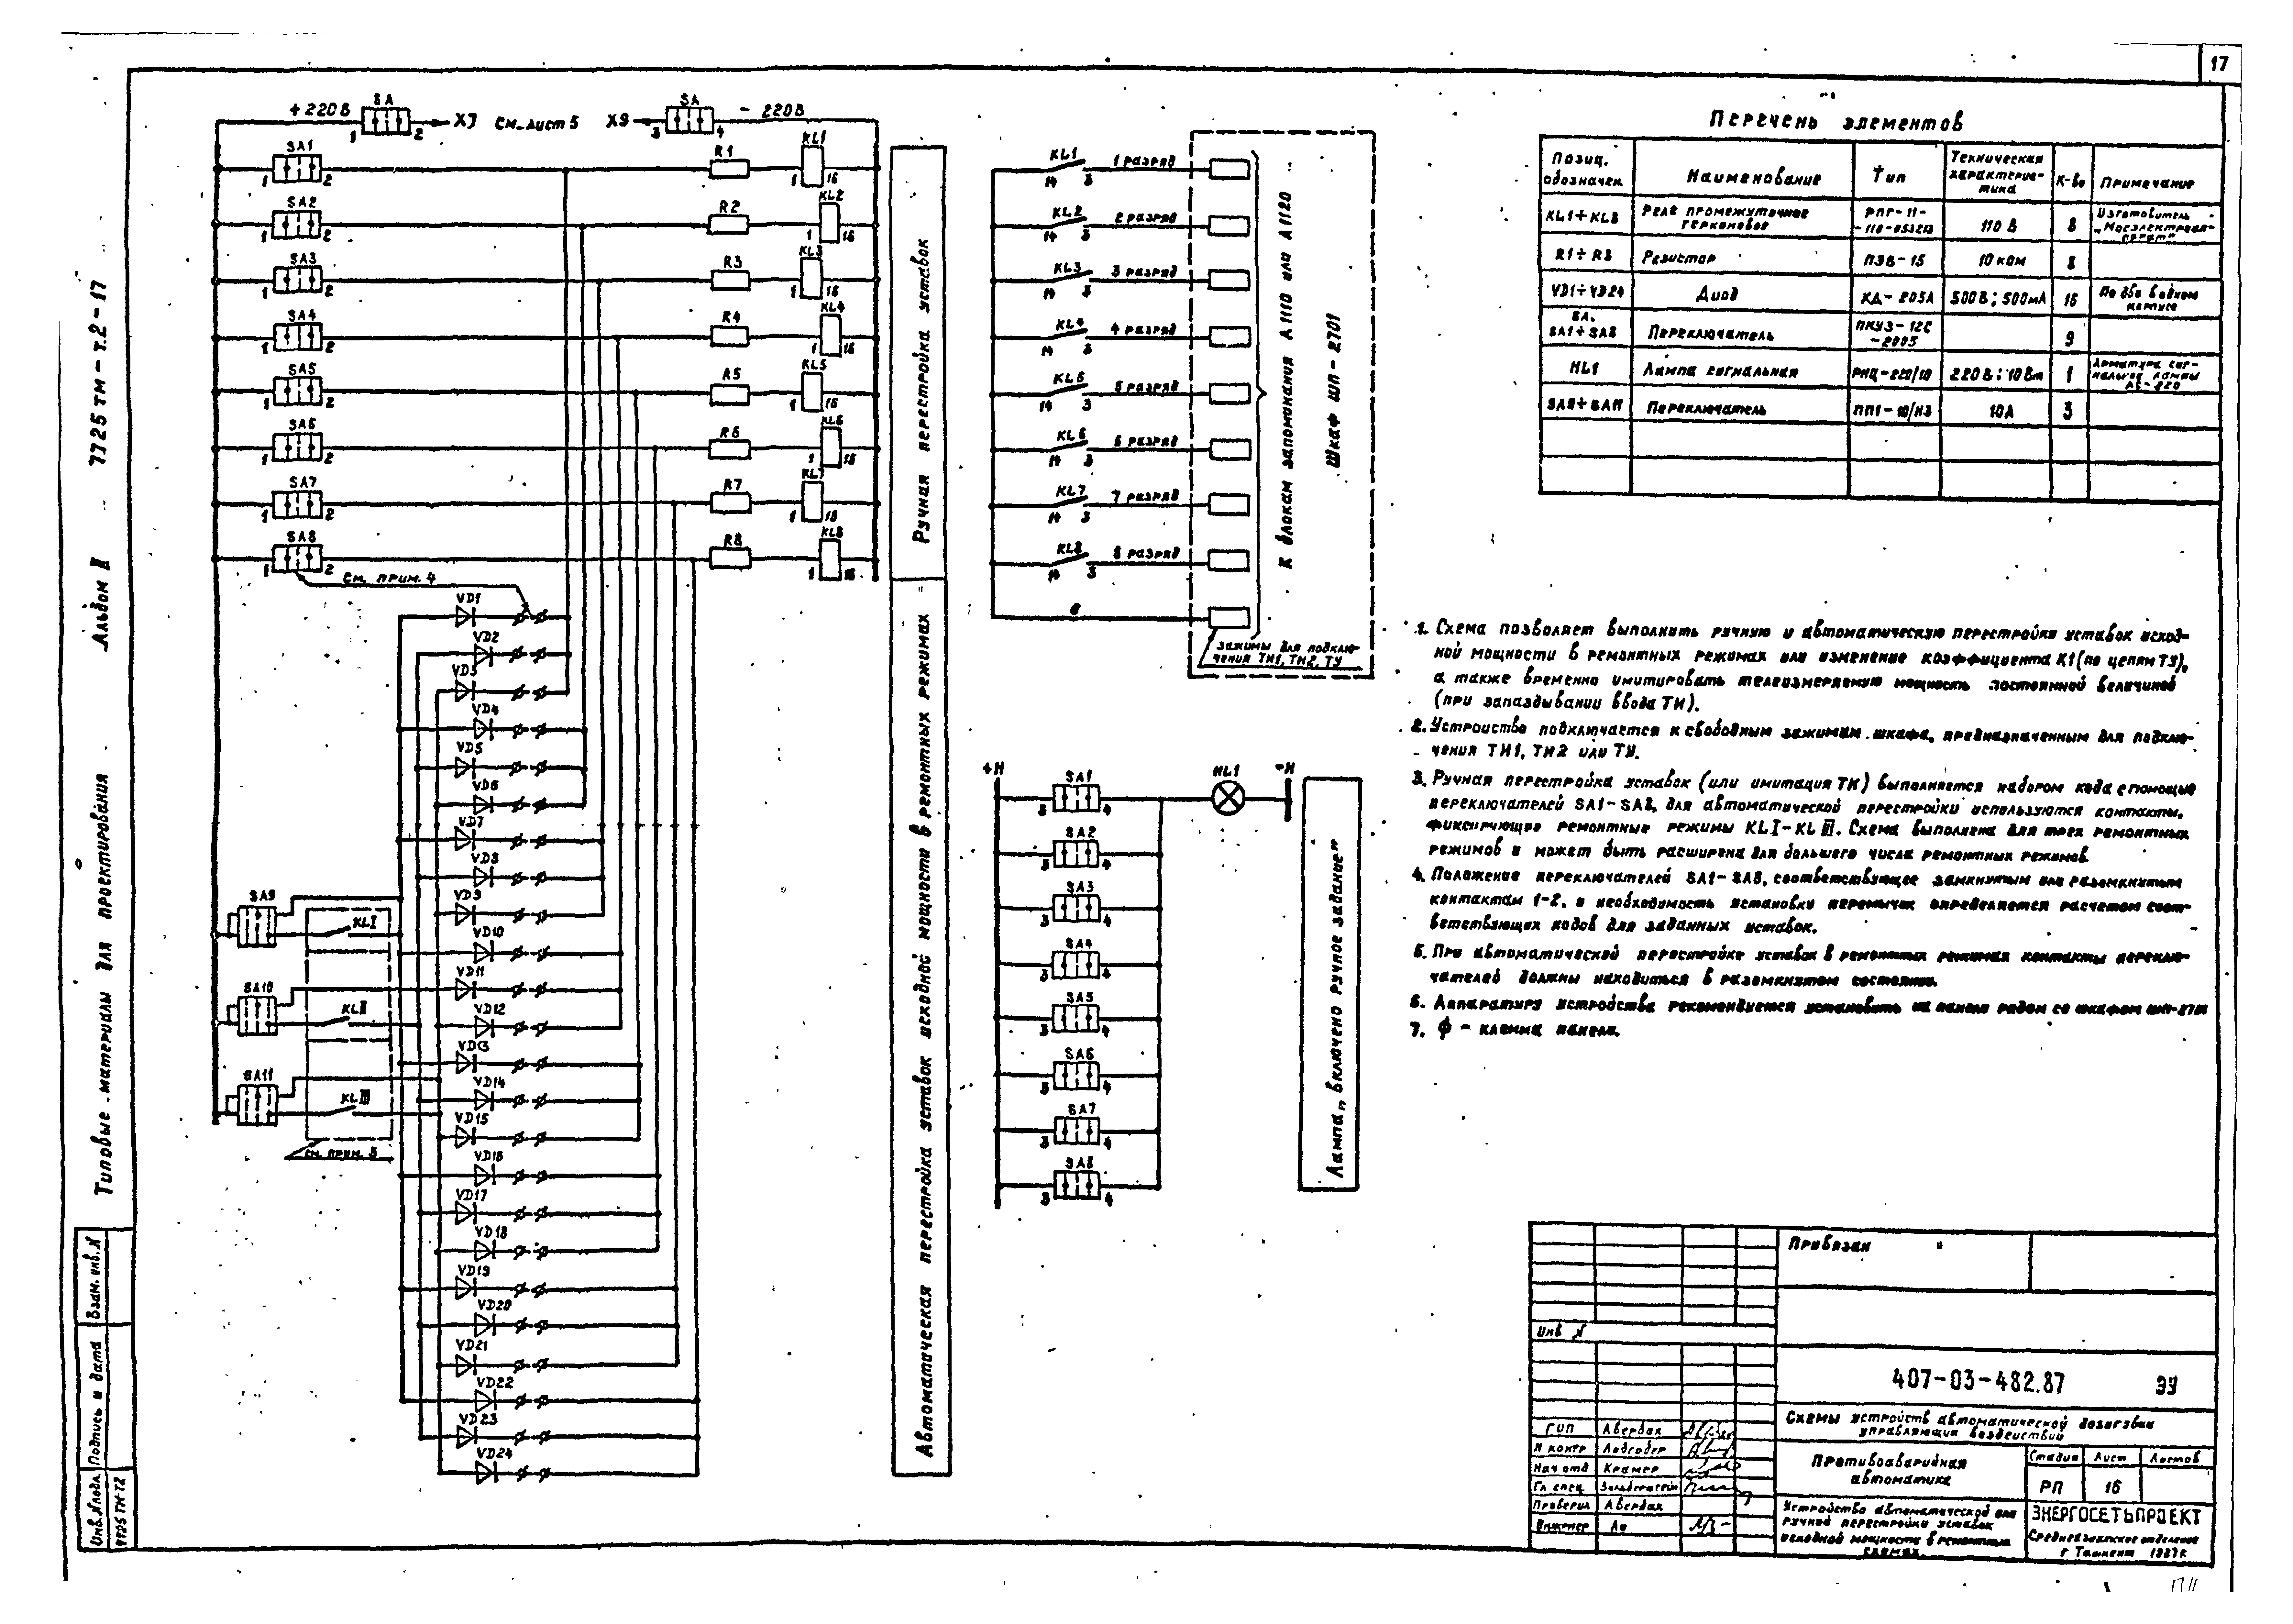 17
+220В
SA
1
2
X7
См. лист 5
X9
SA
3
4
- 220В
SA1
1
2
R1
KL1
1
16
SA2
1
2
R2
KL2
1
16
SA3
1
2
R3
KL3
1
16
SA4
1
2
R4
KL4
1
16
SA5
1
2
R5
KL5
1
16
SA6
1
2
R6
KL6
1
16
SA7
1
2
R7
KL7
1
16
SA8
1
2
R8
KL8
1
16
См. прим. 4
VD1
VD2
VD3
VD4
VD5
VD6
VD7
VD8
VD9
VD10
VD11
VD12
VD13
VD14
VD15
VD16
VD17
VD18
VD19
VD20
VD21
VD22
VD23
VD24
SA9
KL I
SA10
KL II
SA11
KL III
См. прим. 5
Ручная перестройка уставок
Автоматическая перестройка уставок исходной мощности в ремонтных режимах
KL1
14
3
1 разряд
KL2
14
3
2 разряд
KL3
14
3
3 разряд
KL4
14
3
4 разряд
KL5
14
3
5 разряд
KL6
14
3
6 разряд
KL7
14
3
7 разряд
KL8
14
3
8 разряд
0
К блокам запоминания А1110 или А1120
Шкаф ШП-2701
Зажимы для подклю-
чения ТИ1, ТИ2, ТУ
+Н
-Н
HL1
SA1
3
4
SA2
3
4
SA3
3
4
SA4
3
4
SA5
3
4
SA6
3
4
SA7
3
4
SA8
3
4
Лампа „Включено ручное задание"
Перечень элементов
Позиц. обозначен. Наименование Тип Техническая характерис-тика К-во Примечание
KL1÷KL8 Реле промежуточное герконовое РПГ-11--110-053213 110 В 8 Изготовитель
R1÷R8 Резистор ПЭВ-15 10 ком 8
VD1÷VD24 Диод КД-205А 500В; 500мА 16 По два в одном корпусе
SA, SA1÷SA8 Переключатель ПКУ3-12С-2005 9
HL1 Лампа сигнальная РНЦ-220/10 220В; 10Вт 1 Арматура сиг-нальной лампы АС-220
SA9÷SA11 Переключатель ПП1-10/Н3 10А 3
1. Схема позволяет выполнить ручную и автоматическую перестройки уставок исход-
ной мощности в ремонтных режимах или изменение коэффициента К1 (по цепям ТУ),
а также временно имитировать телеизмеряемую мощность постоянной величиной
(при запаздывании ввода ТИ).
2. Устройство подключается к свободным зажимам шкафа, предназначенным для подклю-
чения ТИ1, ТИ2 или ТУ.
3. Ручная перестройка уставок (или имитация ТИ) выполняется набором кода с помощью
переключателей SA1-SA8, для автоматической перестройки используются контакты,
фиксирующие ремонтные режимы KL I-KL III. Схема выполнена для трех ремонтных
режимов и может быть расширена для большего числа ремонтных режимов.
4. Положение переключателей SA1-SA8, соответствующее замкнутым или разомкнутым
контактам 1-2, и необходимость установки перемычек определяется расчетом соот-
ветствующих кодов для заданных уставок.
5. При автоматической перестройке уставок в ремонтных режимах контакты переклю-
чателей должны находиться в разомкнутом состоянии.
6. Аппаратуру устройства рекомендуется установить на панели рядом со шкафом ШП-2701
7. ϕ - клемма панели.
Типовые материалы для проектирования Альбом II 7725 тм-т.2-17
Взам. инв. N
Подпись и дата
Инв. N подл.
7725 ТМ-Т2
Привязан
Инв N
407-03-482.87 ЭУ
Схемы устройств автоматической дозировки
управляющих воздействий
ГИП Авербах
Н контр
Нач отд Крамер
Гл спец
Проверил Авербах
Инженер
Противоаварийная
автоматика
Стадия Лист Листов
РП 16
Устройство автоматической или
ручной перестройки уставок
исходной мощности в ремонтных
схемах
ЭНЕРГОСЕТЬПРОЕКТ
Среднеазиатское отделение
г Ташкент 1987г.